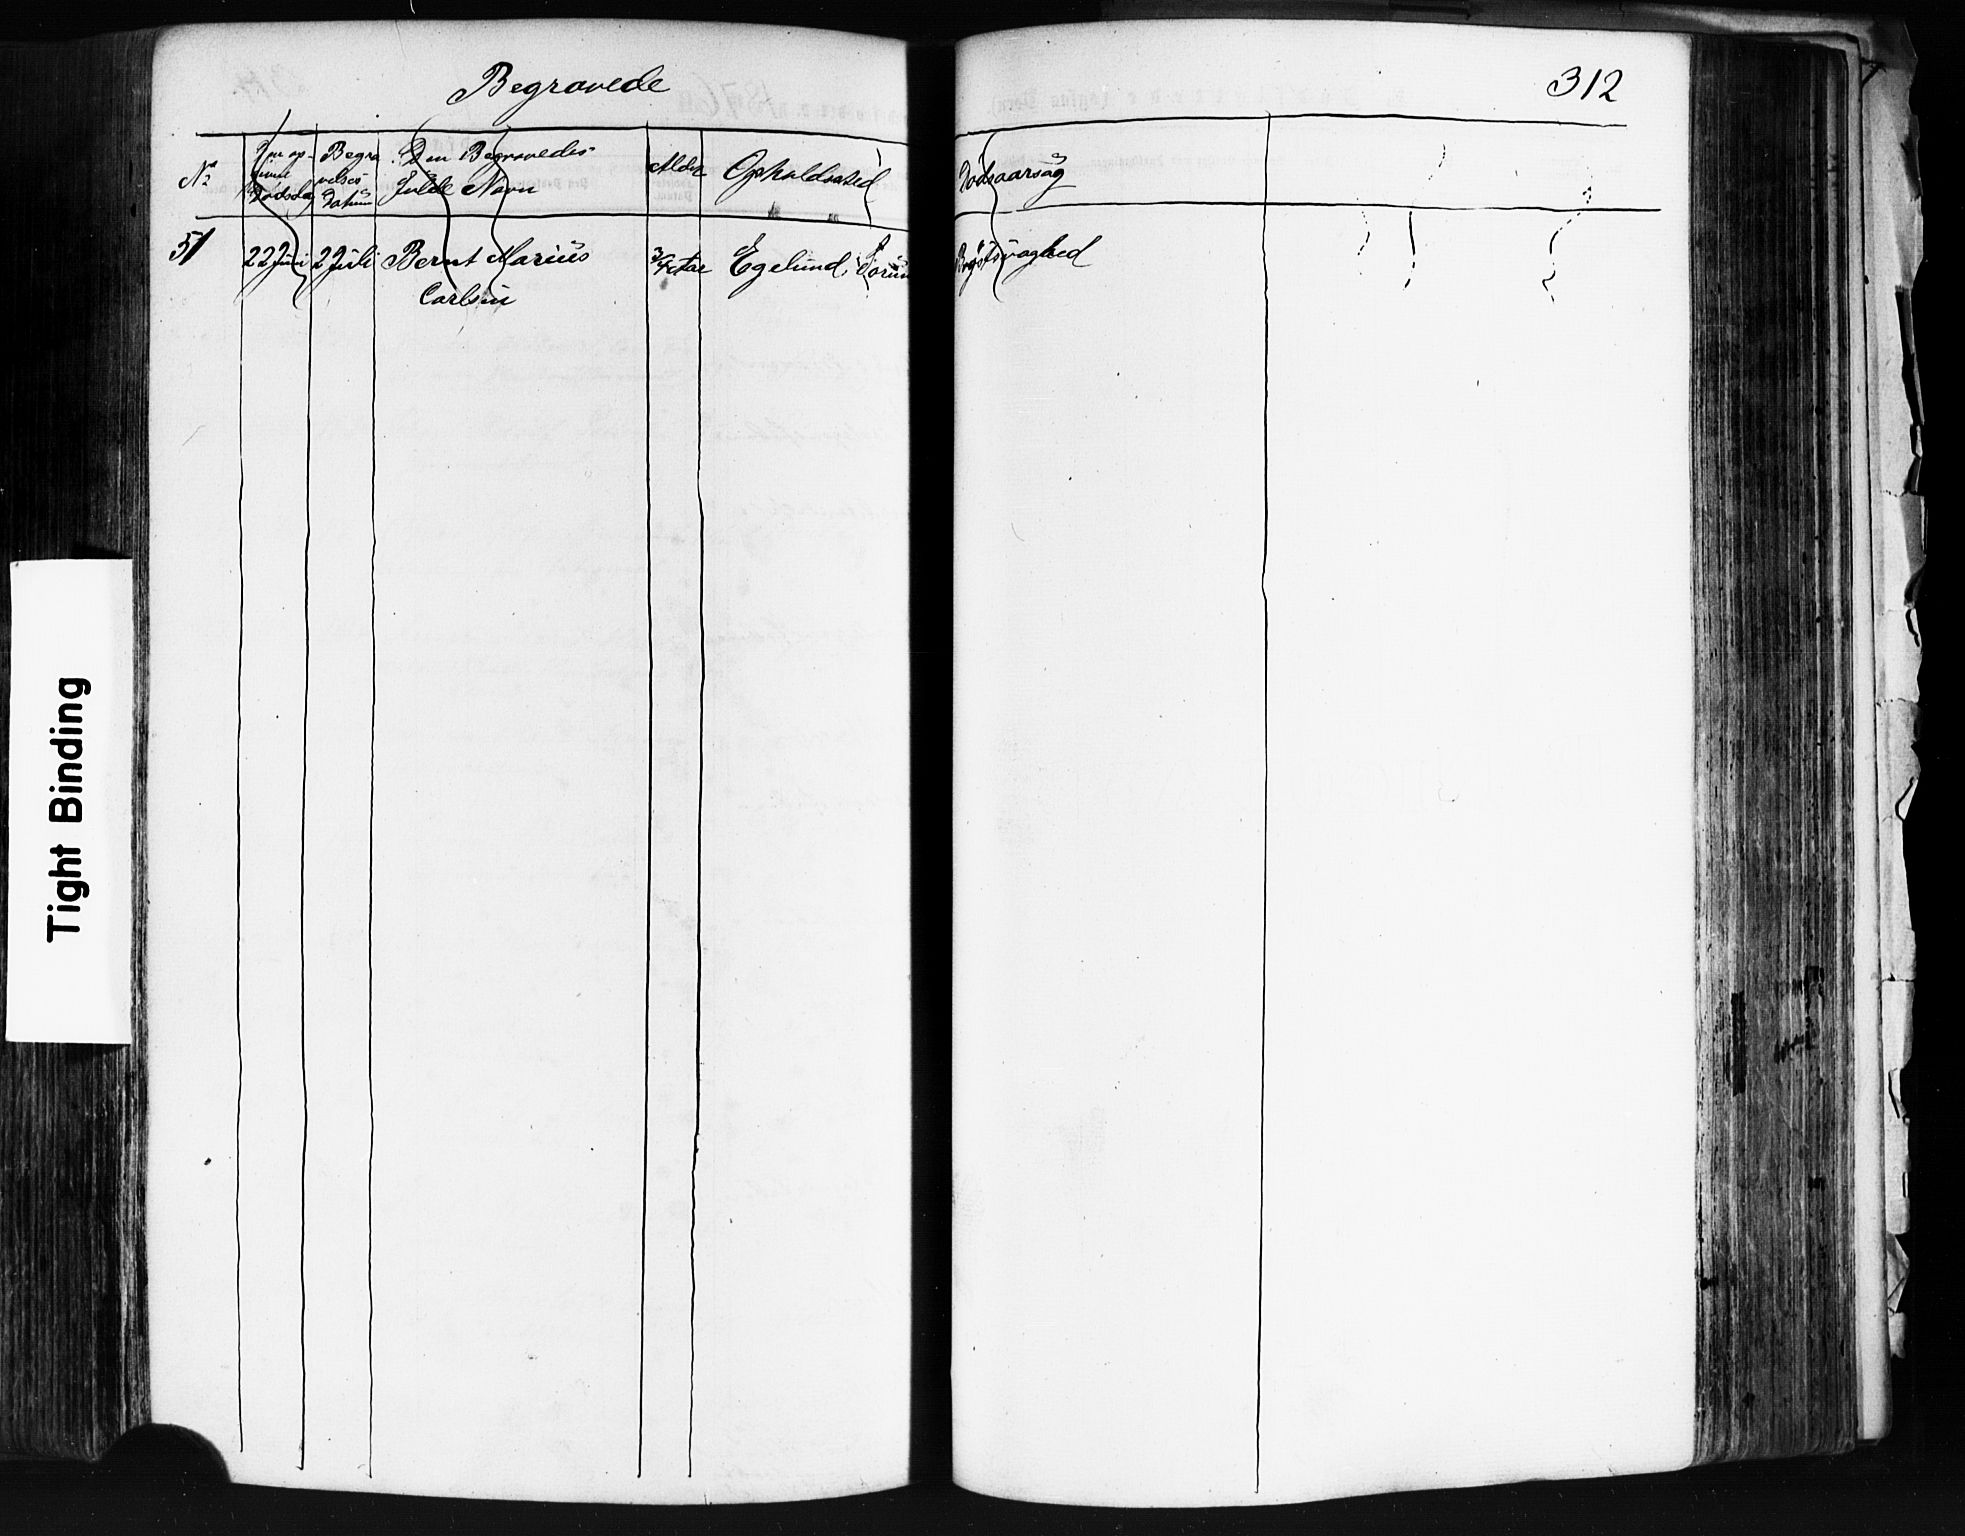 Begravede
312
No
Den op-
givne
Dødsdag
Begra
velses
Datum
Den Begravedes
fulde Navn
Alder
Opholdssted
Dødsaarsag
51
22 Juni
2 Juli
Bernt Marius
Carlsen
3/4 Aar
Egelund,
Brystsvaghed
Tight Binding